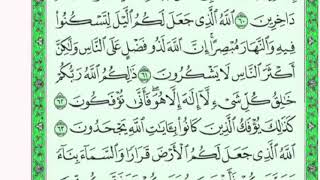 دَاخِرِينَ ٦٠ ٱللَّهُ ٱلَّذِى جَعَلَ لَكُمُ ٱلَّيْلَ لِتَسْكُنُوا۟
فِيهِ وَٱلنَّهَارَ مُبْصِرًا إِنَّ ٱللَّهَ لَذُو فَضْلٍ عَلَى ٱلنَّاسِ وَلَٰكِنَّ
أَكْثَرَ ٱلنَّاسِ لَا يَشْكُرُونَ ٦١ ذَٰلِكُمُ ٱللَّهُ رَبُّكُمْ
خَٰلِقُ كُلِّ شَىْءٍ لَّآ إِلَٰهَ إِلَّا هُوَ فَأَنَّىٰ تُؤْفَكُونَ ٦٢
كَذَٰلِكَ يُؤْفَكُ ٱلَّذِينَ كَانُوا۟ بِـَٔايَٰتِ ٱللَّهِ يَجْحَدُونَ ٦٣
ٱللَّهُ ٱلَّذِى جَعَلَ لَكُمُ ٱلْأَرْضَ قَرَارًا وَٱلسَّمَآءَ بِنَآءً